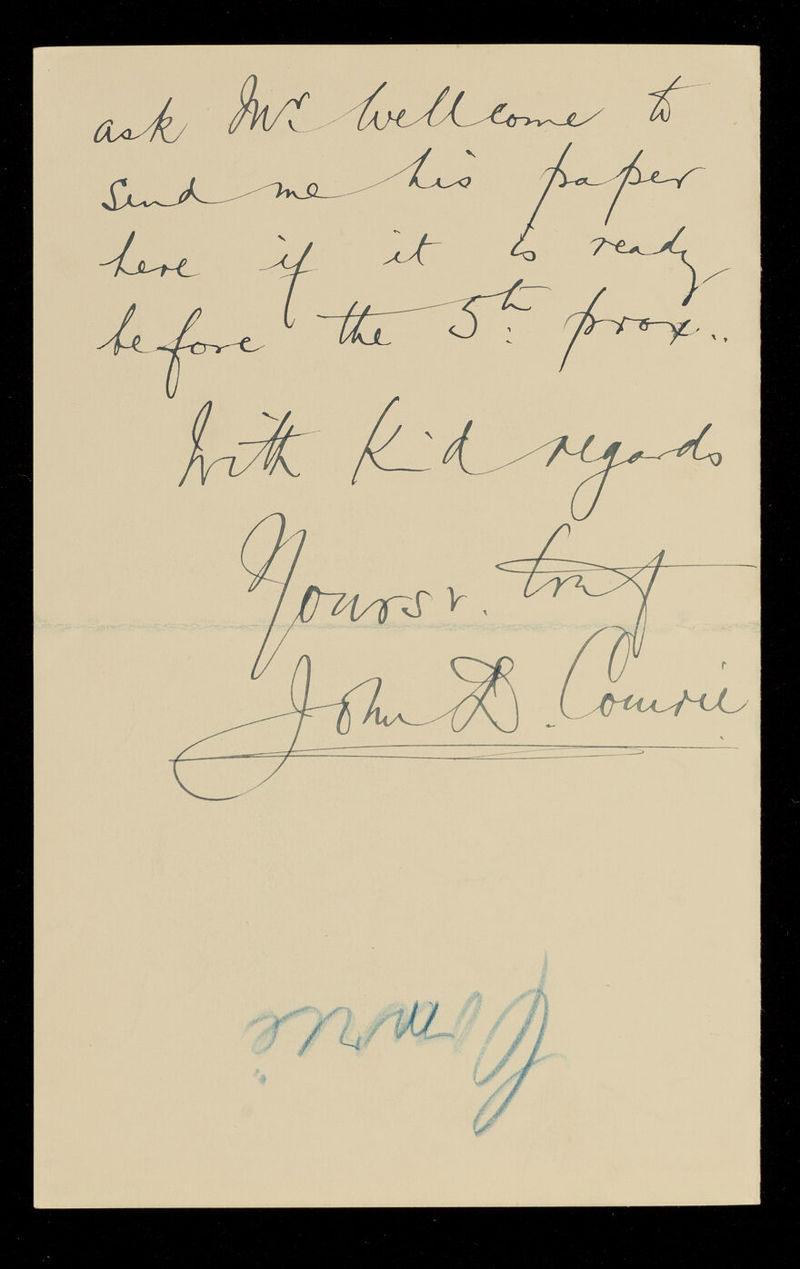 ask Mr. Wellcome to
send me his paper
here if it is ready
before the 5th prox..
With Kid regards
Yours v. truly
John D. Comrie
Comrie